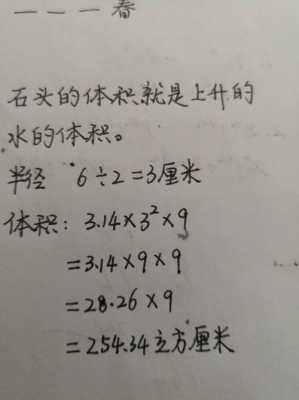 一一一春
石头的体积就是上升的
水的体积。
半径 6÷2=3厘米
体积：3.14×3²×9
=3.14×9×9
=28.26×9
=254.34立方厘米